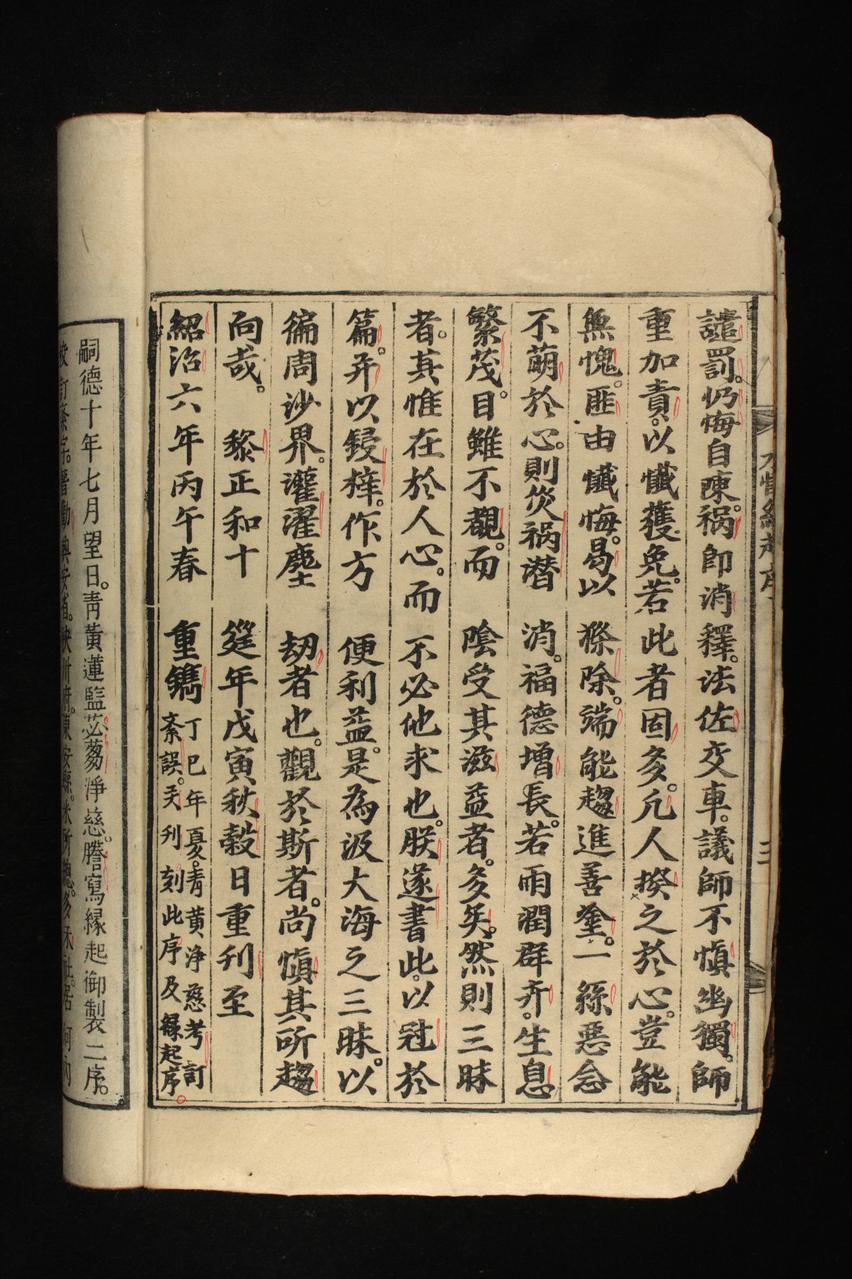 譴罰。仍悔自陳。禍即消釋。法佐交車。議師不慎幽獨。師
重加責。以懺獲免。若此者固多。凢人揆之於心。豈能
無愧。匪由懺悔。曷以滌除。端能趨進善𡍼。一絲惡念
不萌於心。則灾禍潛消。福德增長。若雨潤群卉。生息
繁茂。目雖不覩。而陰受其滋益者。多矣。然則三昧
者。其惟在於人心。而不必他求也。朕遂書此。以冠於
篇。并以鋟梓。作方便利益。是為汲大海之三昧。以
徧周沙界。灌濯塵劫者也。觀於斯者。尚慎其所趨
向哉。黎正和十筵年戊寅秋穀日重刊至
紹治六年丙午春重鐫丁巳年憂。青黄淨慈考訂
紊誤。天刊刻此序及緣起序。
嗣德十年七月望日。青黄蓮監苾蒭淨慈。謄寫緣起御製二序。
三